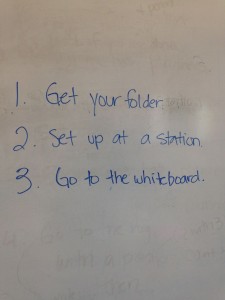 1. Get your folder
2. Set up at a station
3. Go to the whiteboard.